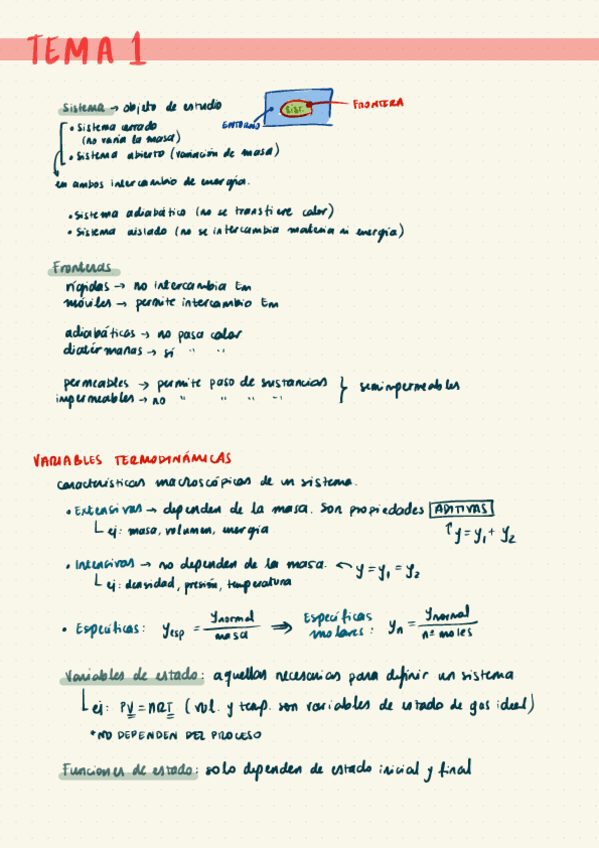 TEMA 1
Sistema → objeto de estudio
SIST.
FRONTERA
ENTORNO
• Sistema cerrado
(no varía la masa)
• Sistema abierto (variación de masa)
en ambos intercambio de energía.
• Sistema adiabático (no se transfiere calor)
• Sistema aislado (no se intercambia materia ni energía)
Fronteras
rígidas → no intercambia Em
móviles → permite intercambio Em
adiabáticas → no pasa calor
diatérmanas → sí " "
permeables → permite paso de sustancias } semimpermeables
impermeables → no " " " "
VARIABLES TERMODINÁMICAS
características macroscópicas de un sistema.
• Extensivas → dependen de la masa. Son propiedades ADITIVAS
ej: masa, volumen, energía
↑ y = y₁ + y₂
• Intensivas → no dependen de la masa. y = y₁ = y₂
ej: densidad, presión, temperatura
• Específicas: yesp = ynormal / masa ⇒ Específicas molares: yn = ynormal / nº moles
Variables de estado: aquellas necesarias para definir un sistema
ej: PV = nRT (vol. y temp. son variables de estado de gas ideal)
*NO DEPENDEN DEL PROCESO
Funciones de estado: solo dependen de estado inicial y final